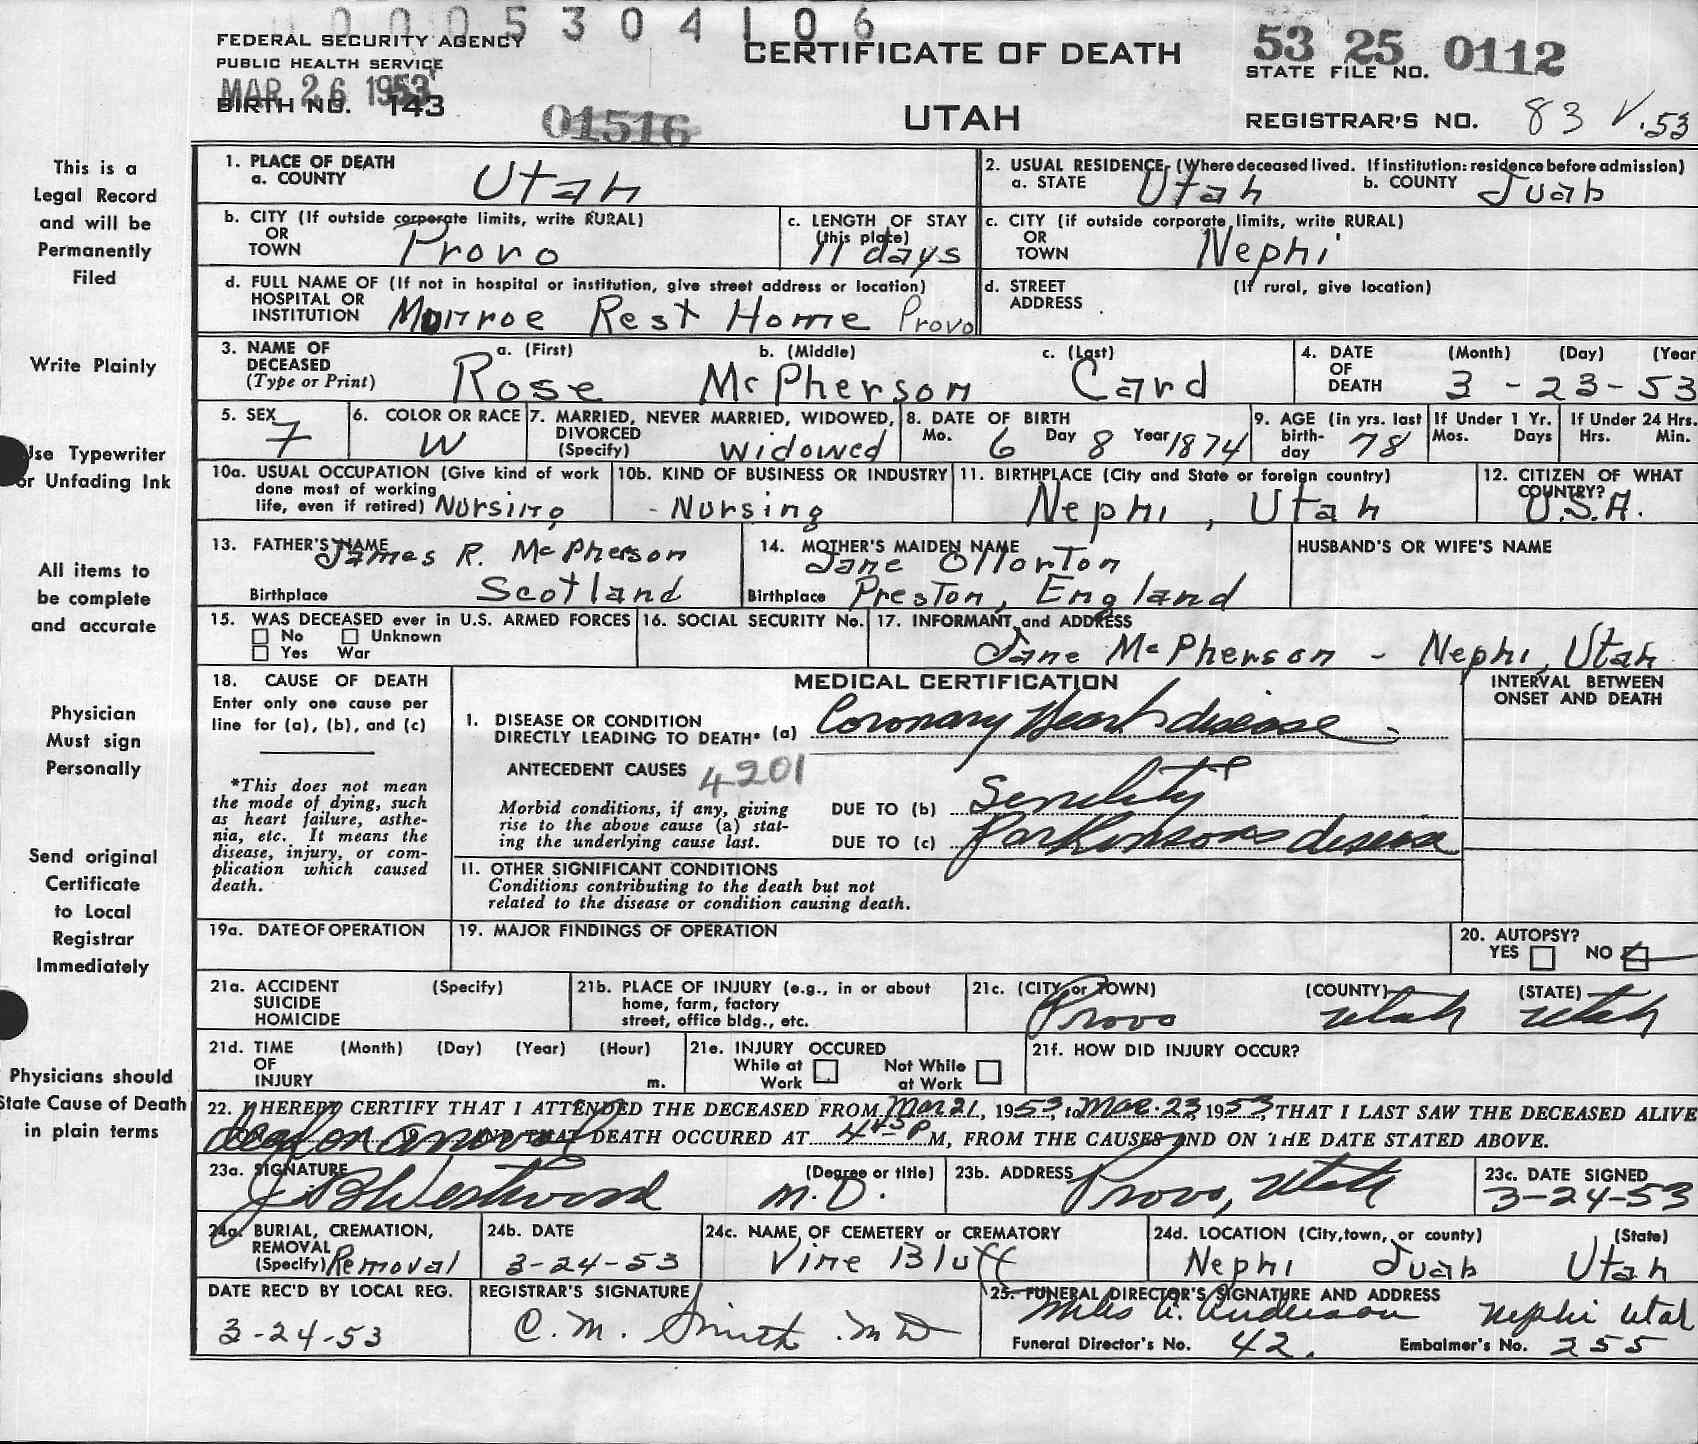 0005304106
FEDERAL SECURITY AGENCY
PUBLIC HEALTH SERVICE
MAR 26 1953
BIRTH NO. 143
01516
CERTIFICATE OF DEATH
UTAH
53 25 0112
STATE FILE NO.
REGISTRAR'S NO. 83 V.53
This is a
Legal Record
and will be
Permanently
Filed
Write Plainly
Use Typewriter
or Unfading Ink
All items to
be complete
and accurate
Physician
Must sign
Personally
Send original
Certificate
to Local
Registrar
Immediately
Physicians should
State Cause of Death
in plain terms
1. PLACE OF DEATH
a. COUNTY Utah
2. USUAL RESIDENCE (Where deceased lived. If institution: residence before admission)
a. STATE Utah b. COUNTY Juab
b. CITY (If outside corporate limits, write RURAL)
OR
TOWN Provo
c. LENGTH OF STAY
(this place)
11 days
c. CITY (if outside corporate limits, write RURAL)
OR
TOWN Nephi
d. FULL NAME OF (If not in hospital or institution, give street address or location)
HOSPITAL OR
INSTITUTION Monroe Rest Home Provo
d. STREET (If rural, give location)
ADDRESS
3. NAME OF
DECEASED
(Type or Print)
a. (First) b. (Middle) c. (Last)
Rose McPherson Card
4. DATE (Month) (Day) (Year
OF
DEATH 3 - 23 - 53
5. SEX
F
6. COLOR OR RACE
W
7. MARRIED, NEVER MARRIED, WIDOWED,
DIVORCED
(Specify) Widowed
8. DATE OF BIRTH
Mo. 6 Day 8 Year 1874
9. AGE (in yrs. last
birth-
day 78
If Under 1 Yr.
Mos. Days
If Under 24 Hrs.
Hrs. Min.
10a. USUAL OCCUPATION (Give kind of work
done most of working
life, even if retired) Nursing
10b. KIND OF BUSINESS OR INDUSTRY
- Nursing
11. BIRTHPLACE (City and State or foreign country)
Nephi, Utah
12. CITIZEN OF WHAT
COUNTRY?
U.S.A.
13. FATHER'S NAME
James R. McPherson
Birthplace Scotland
14. MOTHER'S MAIDEN NAME
Jane Ollorton
Birthplace Preston, England
HUSBAND'S OR WIFE'S NAME
15. WAS DECEASED ever in U.S. ARMED FORCES
No Unknown
Yes War
16. SOCIAL SECURITY No.
17. INFORMANT and ADDRESS
Jane McPherson - Nephi, Utah
18. CAUSE OF DEATH
Enter only one cause per
line for (a), (b), and (c)
*This does not mean
the mode of dying, such
as heart failure, asthe-
nia, etc. It means the
disease, injury, or com-
plication which caused
death.
MEDICAL CERTIFICATION
INTERVAL BETWEEN
ONSET AND DEATH
1. DISEASE OR CONDITION
DIRECTLY LEADING TO DEATH* (a) Coronary Heart disease
ANTECEDENT CAUSES 4201
Morbid conditions, if any, giving
rise to the above cause (a) stat-
ing the underlying cause last.
DUE TO (b) Senility
DUE TO (c) Parkinsons disease
11. OTHER SIGNIFICANT CONDITIONS
Conditions contributing to the death but not
related to the disease or condition causing death.
19a. DATE OF OPERATION
19. MAJOR FINDINGS OF OPERATION
20. AUTOPSY?
YES NO
21a. ACCIDENT (Specify)
SUICIDE
HOMICIDE
21b. PLACE OF INJURY (e.g., in or about
home, farm, factory
street, office bldg., etc.
21c. (CITY or TOWN) (COUNTY) (STATE)
Provo Utah Utah
21d. TIME (Month) (Day) (Year) (Hour)
OF
INJURY m.
21e. INJURY OCCURED
While at Not While
Work at Work
21f. HOW DID INJURY OCCUR?
22. I HEREBY CERTIFY THAT I ATTENDED THE DECEASED FROM Mar 21, 1953, to Mar. 23 1953 THAT I LAST SAW THE DECEASED ALIVE
AND THAT DEATH OCCURED AT 4 45 P M, FROM THE CAUSES AND ON THE DATE STATED ABOVE.
23a. SIGNATURE (Degree or title)
J. B. Westwood M.D.
23b. ADDRESS
Provo, Utah
23c. DATE SIGNED
3-24-53
24a. BURIAL, CREMATION,
REMOVAL
(Specify) Removal
24b. DATE
3-24-53
24c. NAME OF CEMETERY or CREMATORY
Vine Bluff
24d. LOCATION (City, town, or county) (State)
Nephi Juab Utah
DATE REC'D BY LOCAL REG.
3-24-53
REGISTRAR'S SIGNATURE
C. M. Smith MD
25. FUNERAL DIRECTOR'S SIGNATURE AND ADDRESS
Miles A. Anderson Nephi Utah
Funeral Director's No. 42. Embalmer's No. 255